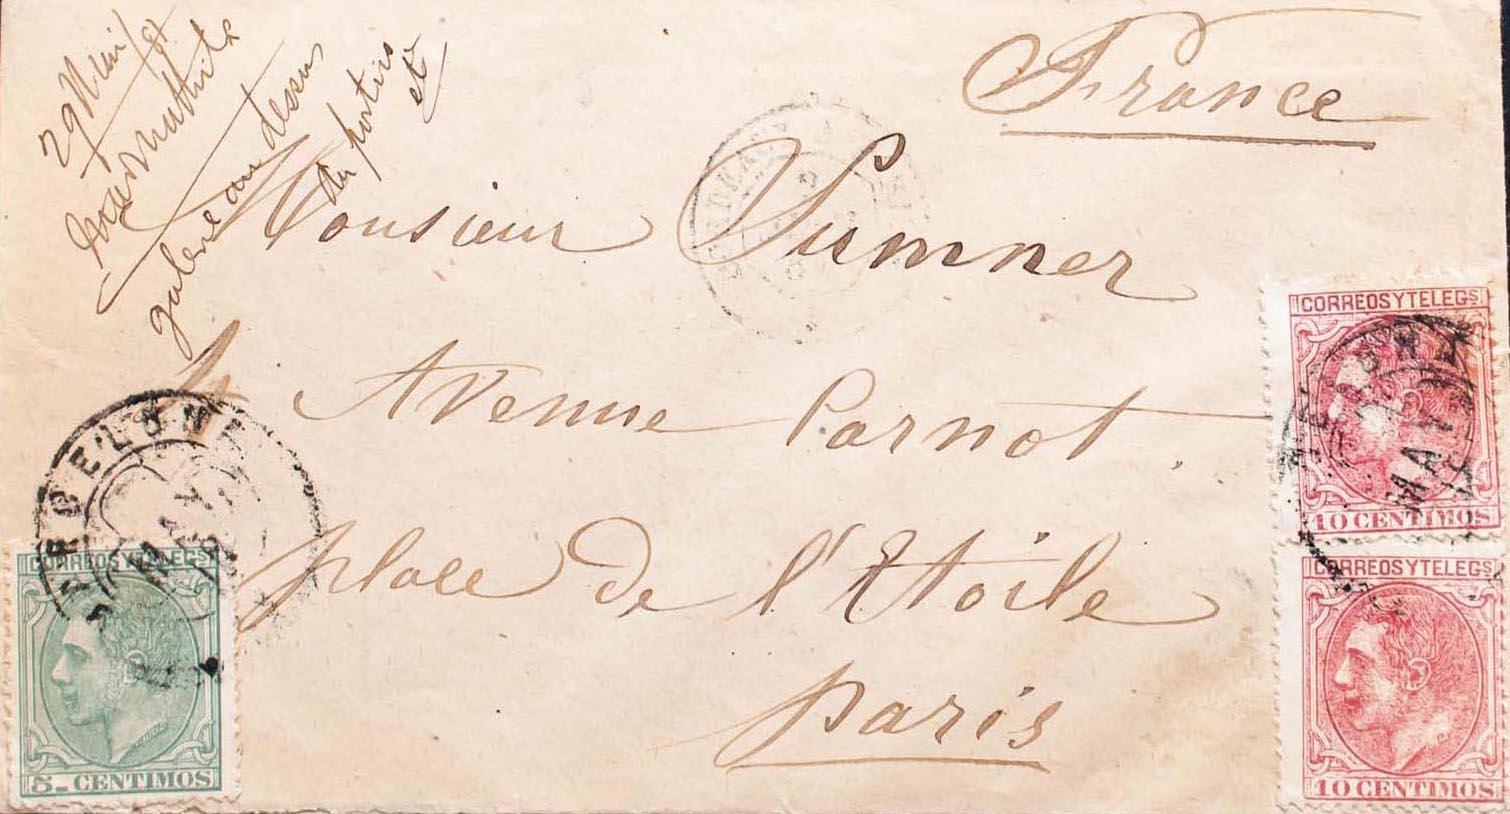 France
29 Mai / 81
galerie au dessus
du portier
et
Monsieur Sumner
4 Avenue Carnot.
place de l'Etoile
Paris
CORREOS Y TELEGS
10 CENTIMOS
CORREOS Y TELEGS
10 CENTIMOS
MAY
CORREOS Y TELEGS
5 CENTIMOS
MAY